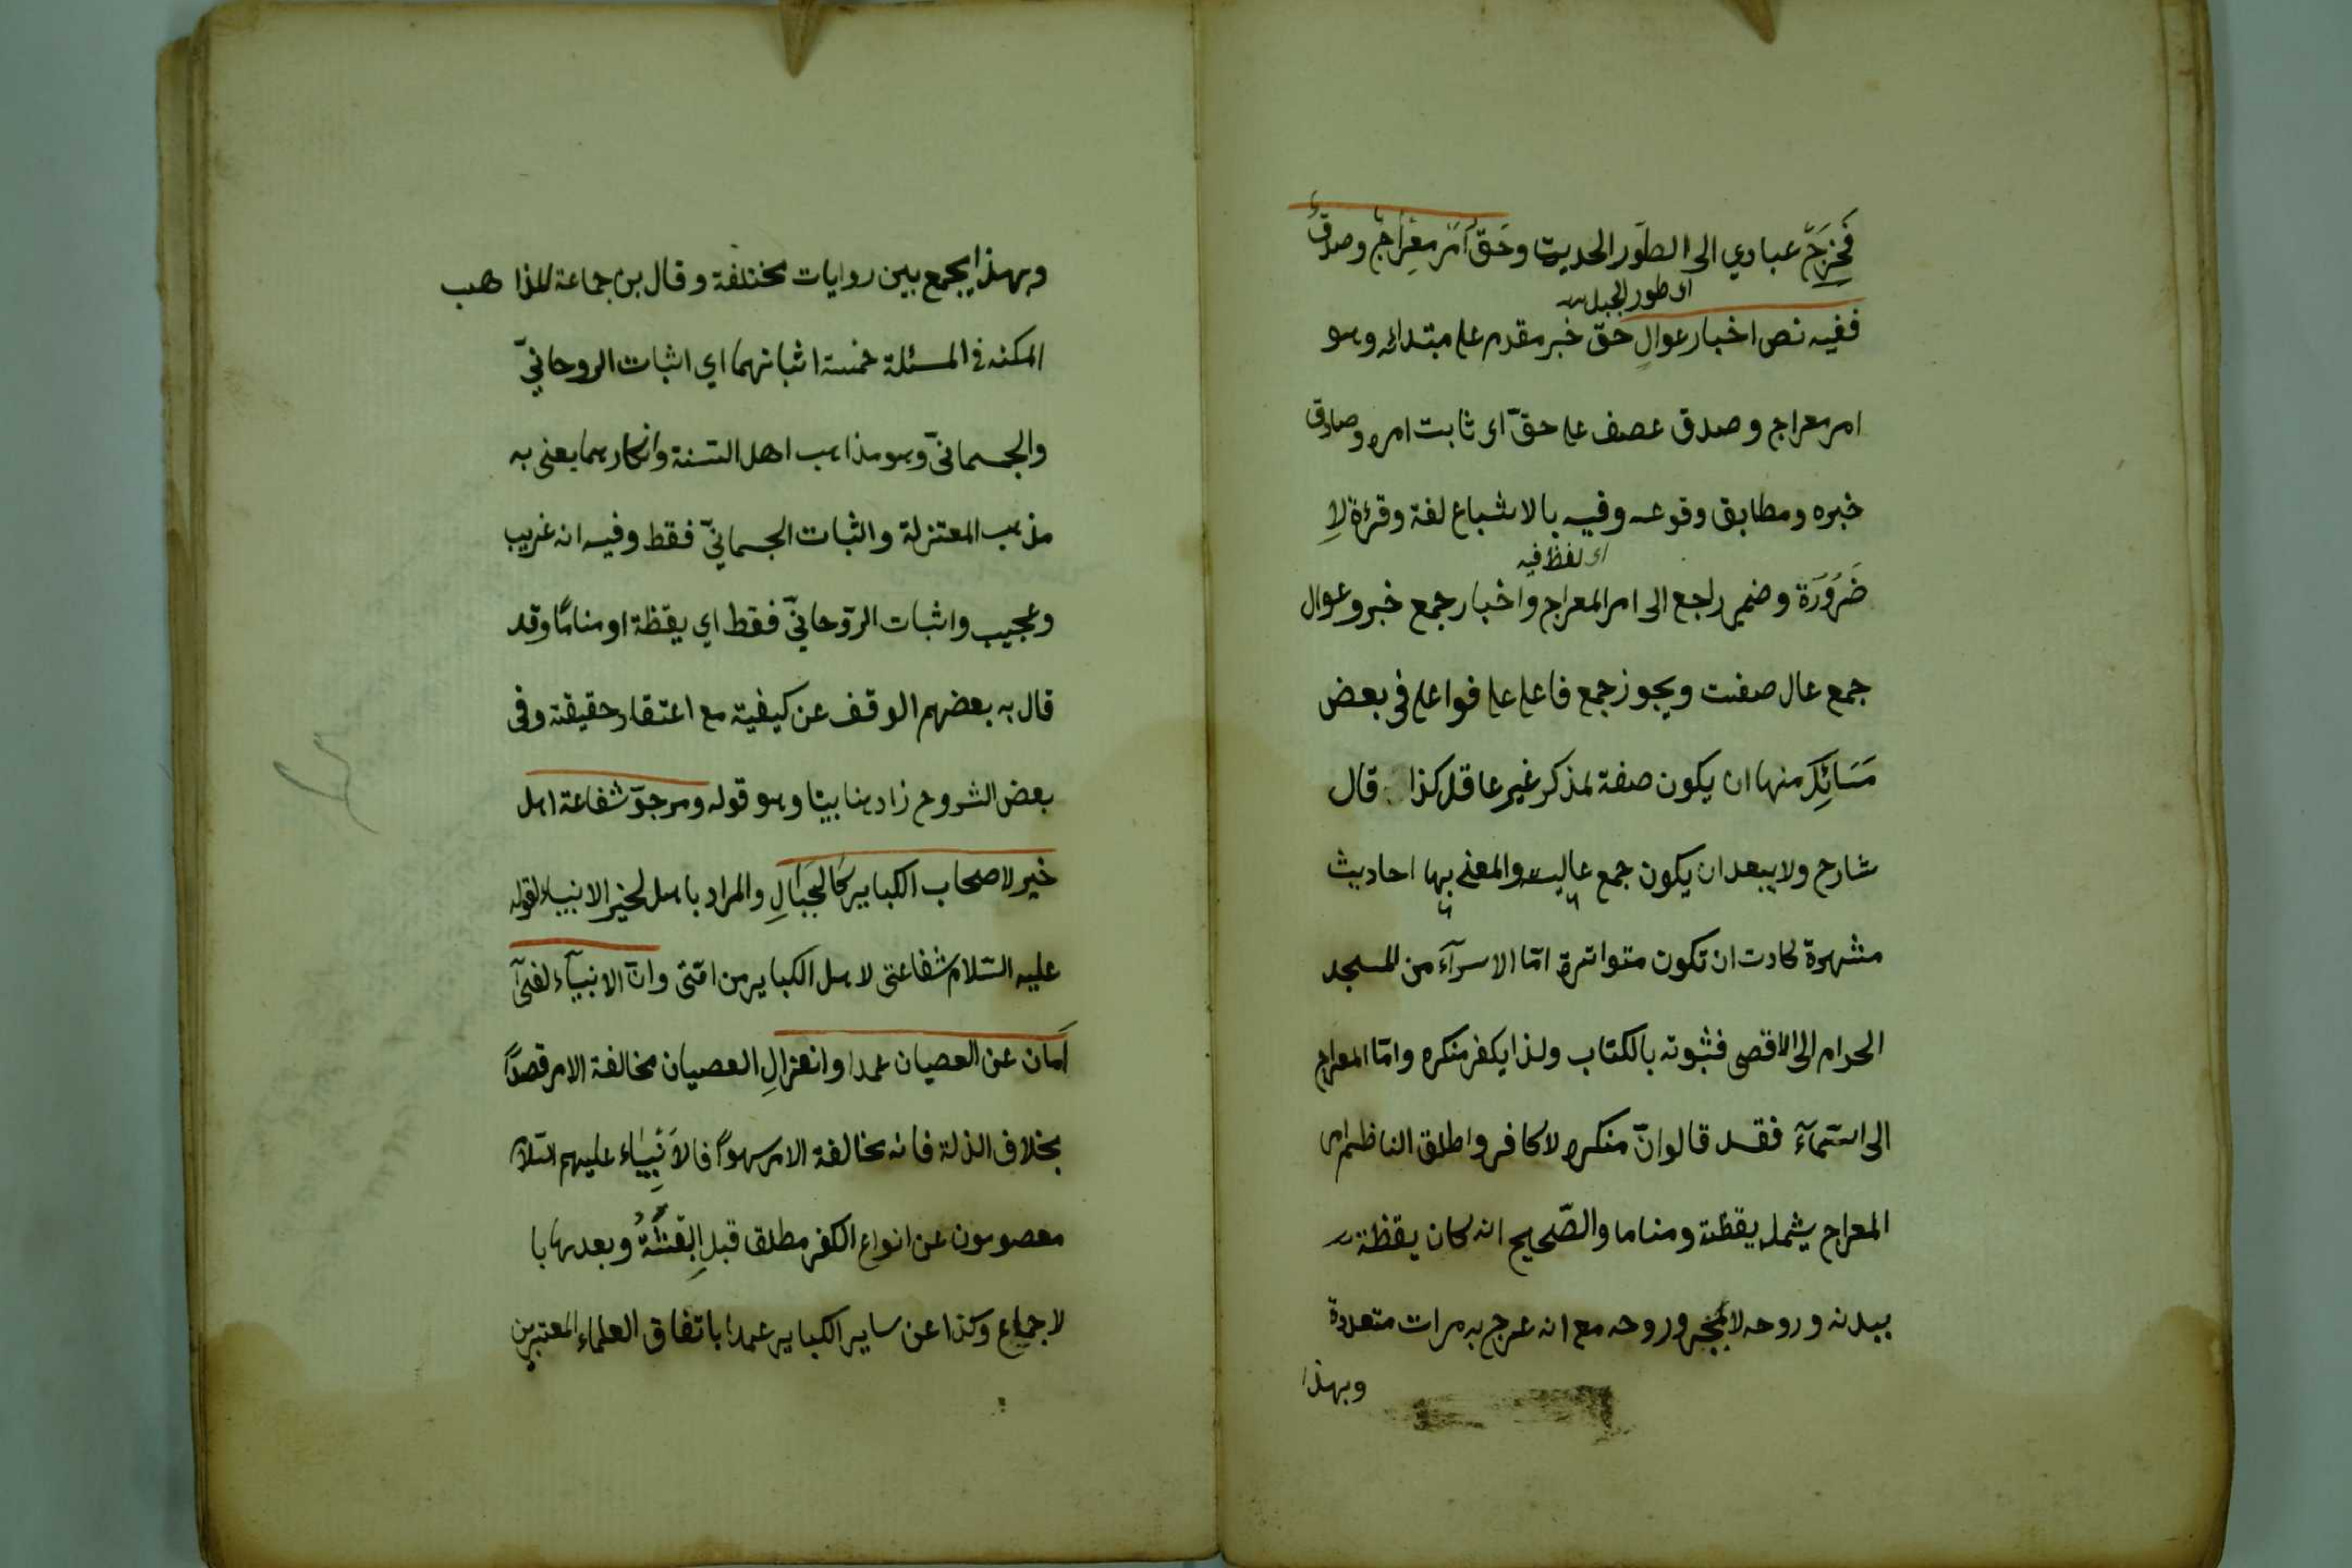 فَحَرِّجْ عبادي الى الطور الحديث وحَقٌّ اَمْرُ مِعْرَاجٍ وصدقٌ
اى طور الجبل
ففيه نص اخبار عوالٍ حق خبر مقدم على مبتدائه وهو
امر معراج وصدق عصف على حقّ اى ثابت امره وصادق
خبره ومطابق وقوعه وفيه بالاشباع لغة وقرءة لا
اى لفظ فيه
ضَرُورَة وضمير راجع الى امر المعراج واخبار جمع خبر وعوال
جمع عال صفت ويجوز جمع فاعل على فواعل فى بعض
مَسَائِل منها ان يكون صفة لمذكر غير عاقل كذا قال
شارح ولا يبعد ان يكون جمع عالية والمعنى بها احاديث
مشهرة كادت ان تكون متواترة امّا الاسرآء من المسجد
الحرام الى الاقصى فثبوته بالكتاب ولذا يكفر منكره وامّا المعراج
الى السّمآء فقد قالوا انّ منكره لا كافر واطلق الناظم امر
المعراج يشمل يقظة ومناما والصّحيح انه كان يقظة
ببدنه وروحه لا بمجرد روحه مع انه عرج به مرات متعددة
وبهذا
وبهذا يجمع بين روايات مختلفة وقال بن جماعة المذاهب
المكنه فى المسئلة خمسة اثباتهما اي اثبات الروحانيّ
والجسمانيّ وهو مذاهب اهل السّنة وانكارهما يعنى به
مذهب المعتزلة والثبات الجسمانيّ فقط وفيه انه غريب
وعجيب واثبات الرّوحانيّ فقط اي يقظة او منامًا وقد
قال به بعضهم الوقف عن كيفية مع اعتقاد حقيقته وفى
بعض الشروح زاد هنا بيتا وهو قوله ومرجوّ شفاعة اهل
خير لاصحاب الكباير كَالجَبَالِ والمراد باهل لخير الانبياء لقوله
عليه السّلام شفاعتى لاهل الكباير من امّتى وانّ الانبيآء لفى
اَمَان عن العصيان عمدا وانعزالِ العصيان مخالفة الامر قصدًا
بخلاف الذلة فانه مخالفة الامر سهوًا فالاَنْبِيَاء عليهم السّلام
معصومون عن انواع الكفر مطلق قبلِ وبعدها با
لاجماع وكذا عن ساير الكباير عمدا باتفاق العلماء المعتبرين